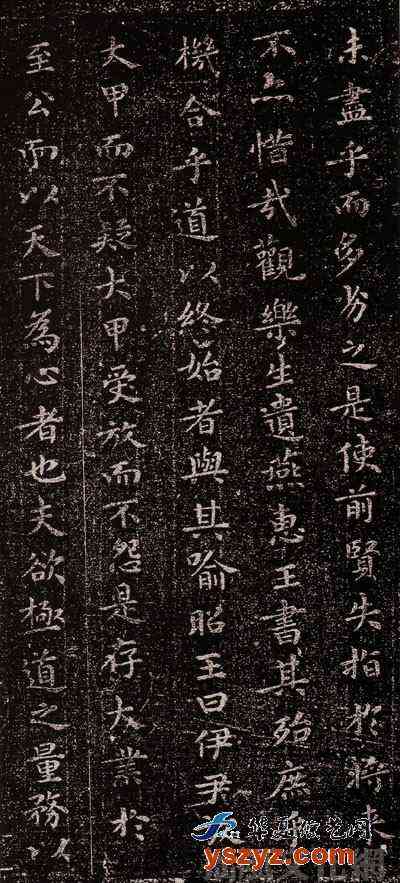 未盡乎而多劣之是使前賢失指於將来
不亦惜哉觀樂生遺燕惠王書其殆庶
機合乎道以終始者與其喻昭王曰伊尹
大甲而不疑大甲受放而不怨是存大業於
至公而以天下為心者也夫欲極道之量務以
yszyz.com